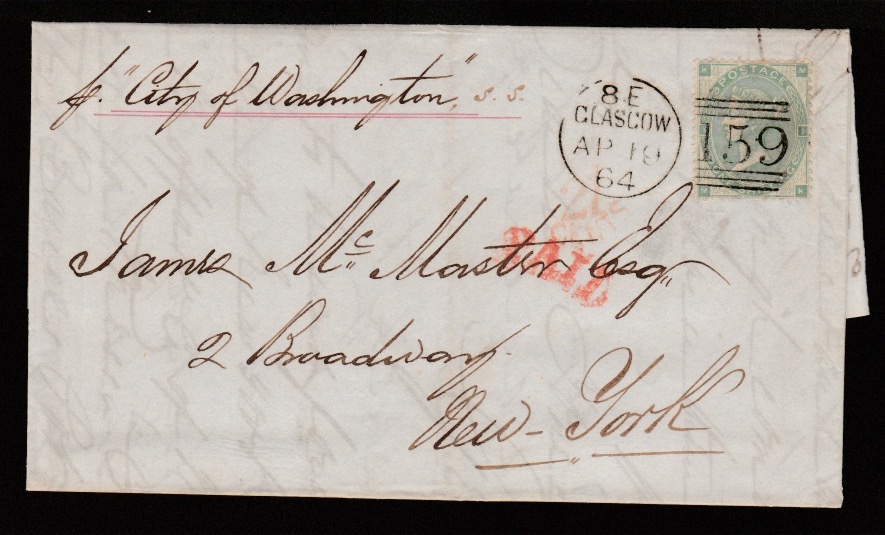 p. "City of Washington", s.s.
8E
GLASGOW
AP 19
64
POSTAGE
K M
159
M K
James Mc. Master Esq"
PAID
2 Broadway.
New-York